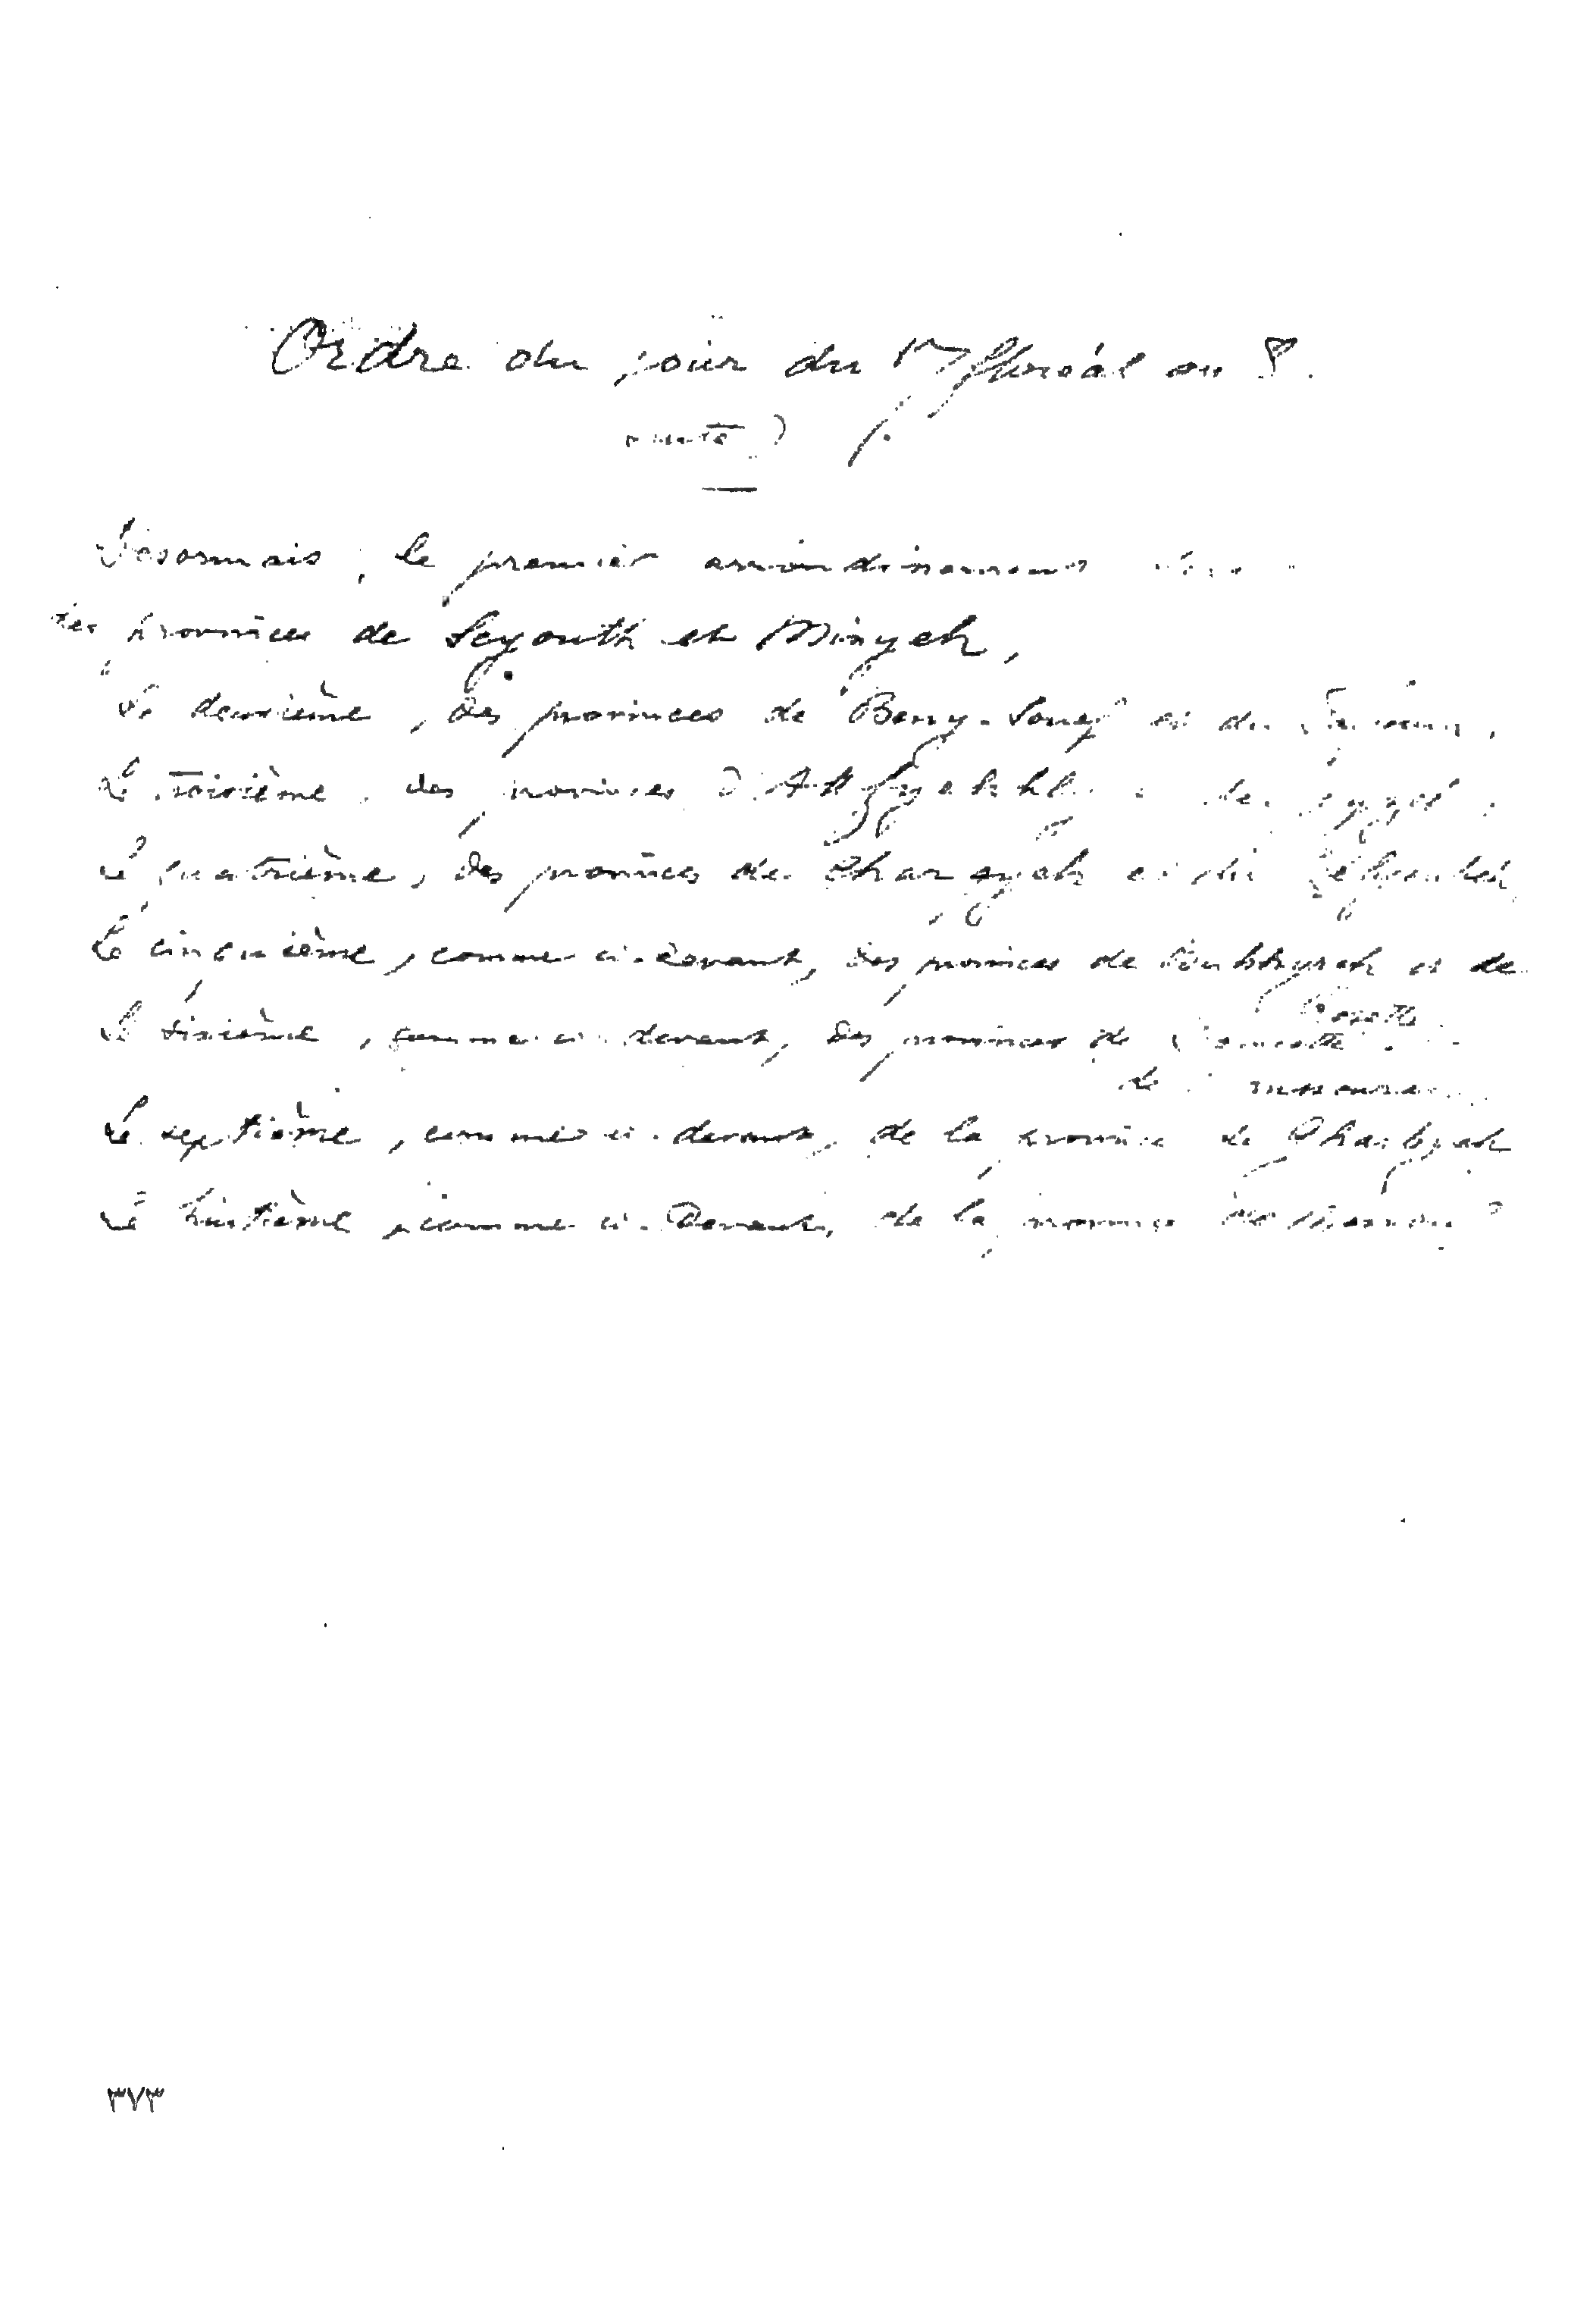 Ordre du jour du 17 floréal an 8.
Désormais, le premier arrondissement
des provinces de Seyouth et Minyeh,
Le deuxième, des provinces de Beny-Souef et du
Le troisième, des provinces
Le quatrième, des provinces de Charqyeh et du
Le cinquième, comme ci-devant, des provinces de et de
Rosette
Le sixième, comme ci-devant, des provinces de
de
Le septième, comme ci-devant, de la province de Gharbyeh
Le huitième, comme ci-devant, de la province
٣٧٣